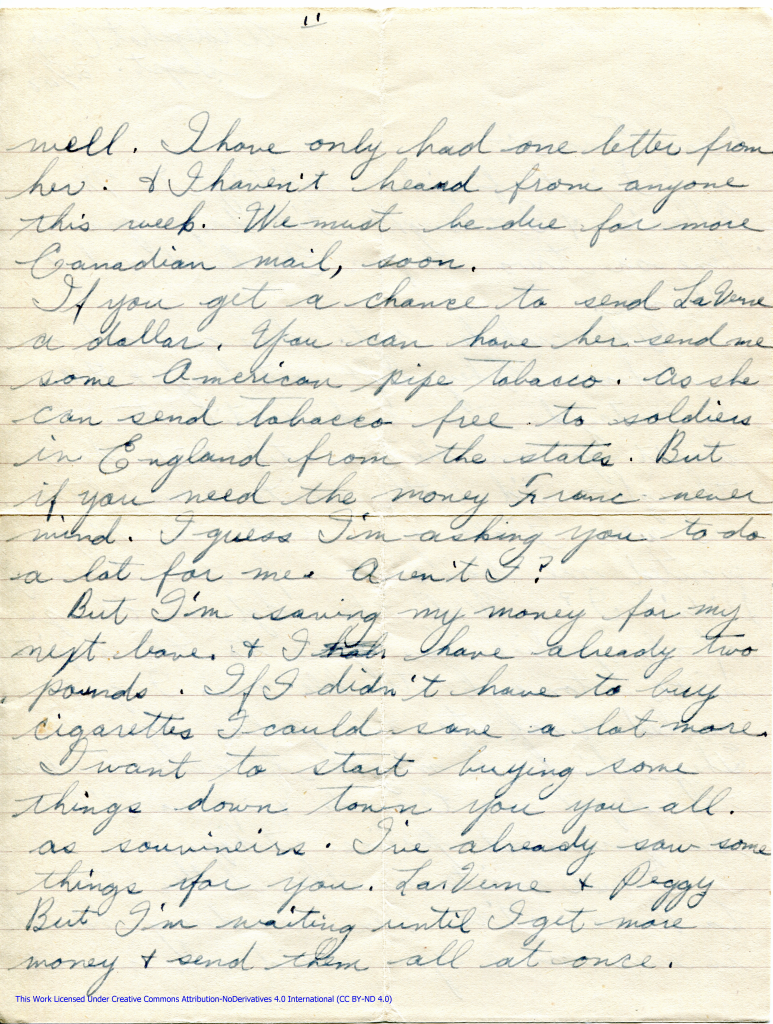 11
well. I have only had one letter from
her. & I haven't heard from anyone
this week. We must be due for more
Canadian mail, soon.
If you get a chance to send LaVerne
a dollar. You can have her send me
some American pipe tobacco. As she
can send tobacco free to soldiers
in England from the states. But
if you need the money Franc never
mind. I guess I'm asking you to do
a lot for me. Aren't I?
But I'm saving my money for my
next leave. & I have already two
pounds. If I didn't have to buy
cigarettes I could save a lot more.
I want to start buying some
things down town you you all.
as souvineirs. I've already saw some
things for you. La Verne & Peggy
But I'm waiting until I get more
money & send them all at once.
This Work Licensed Under Creative Commons Attribution-NoDerivatives 4.0 International (CC BY-ND 4.0)